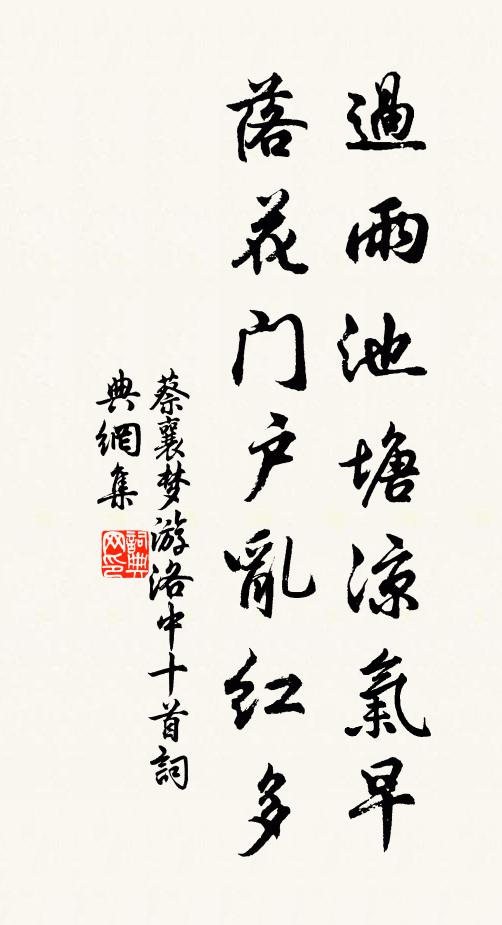 過雨池塘涼氣早
落花门户亂紅多
蔡襄梦游洛中十首詞
典網集
詞典
网印